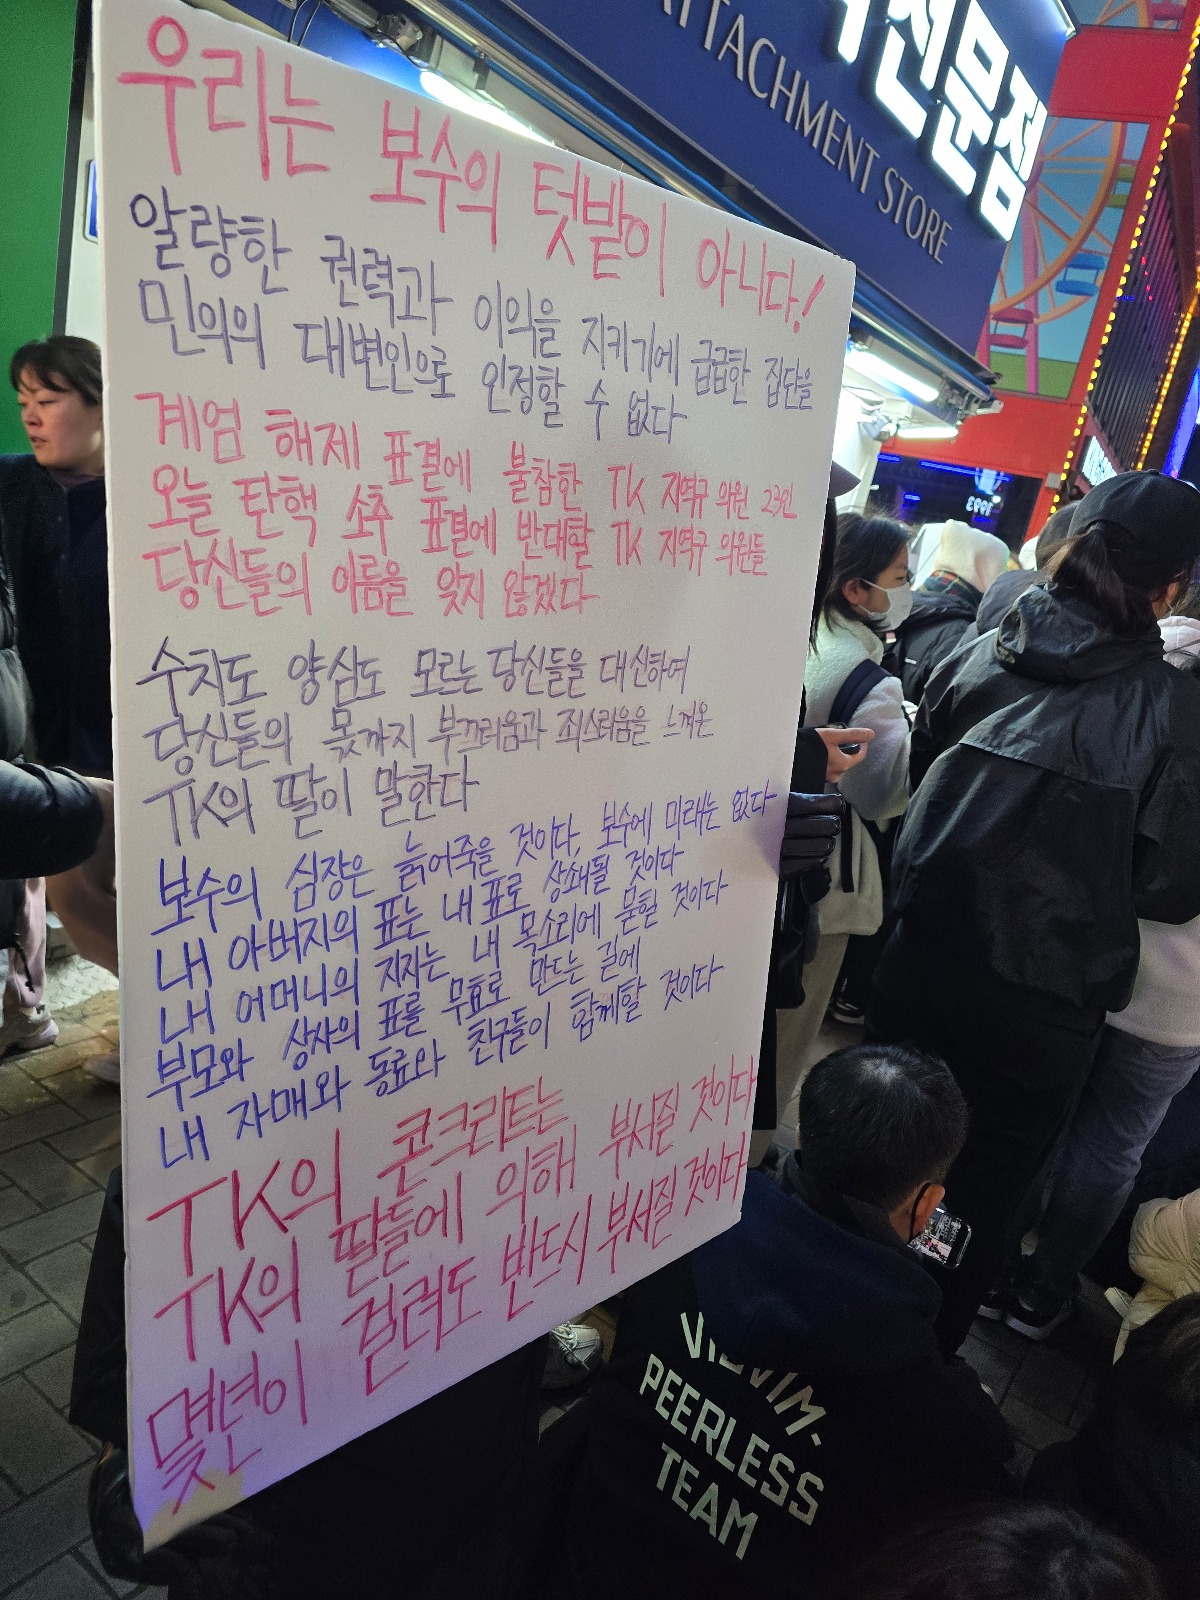 우리는 보수의 텃밭이 아니다!
알량한 권력과 이익을 지키기에 급급한 집단을
민의의 대변인으로 인정할 수 없다
계엄 해제 표결에 불참한 TK 지역구 의원 23인
오늘 탄핵 소추 표결에 반대할 TK 지역구 의원들
당신들의 이름을 잊지 않겠다
수치도 양심도 모르는 당신들을 대신하여
당신들의 몫까지 부끄러움과 죄스러움을 느껴온
TK의 딸이 말한다
보수의 심장은 늙어죽을 것이다, 보수에 미래는 없다
내 아버지의 표는 내 표로 상쇄될 것이다
내 어머니의 지지는 내 목소리에 묻힐 것이다
부모와 상사의 표를 무효로 만드는 길에
내 자매와 동료와 친구들이 함께할 것이다
TK의 콘크리트는
TK의 딸들에 의해 부서질 것이다
몇년이 걸려도 반드시 부서질 것이다
전문점
ATTACHMENT STORE
1993
PEERLESS
TEAM